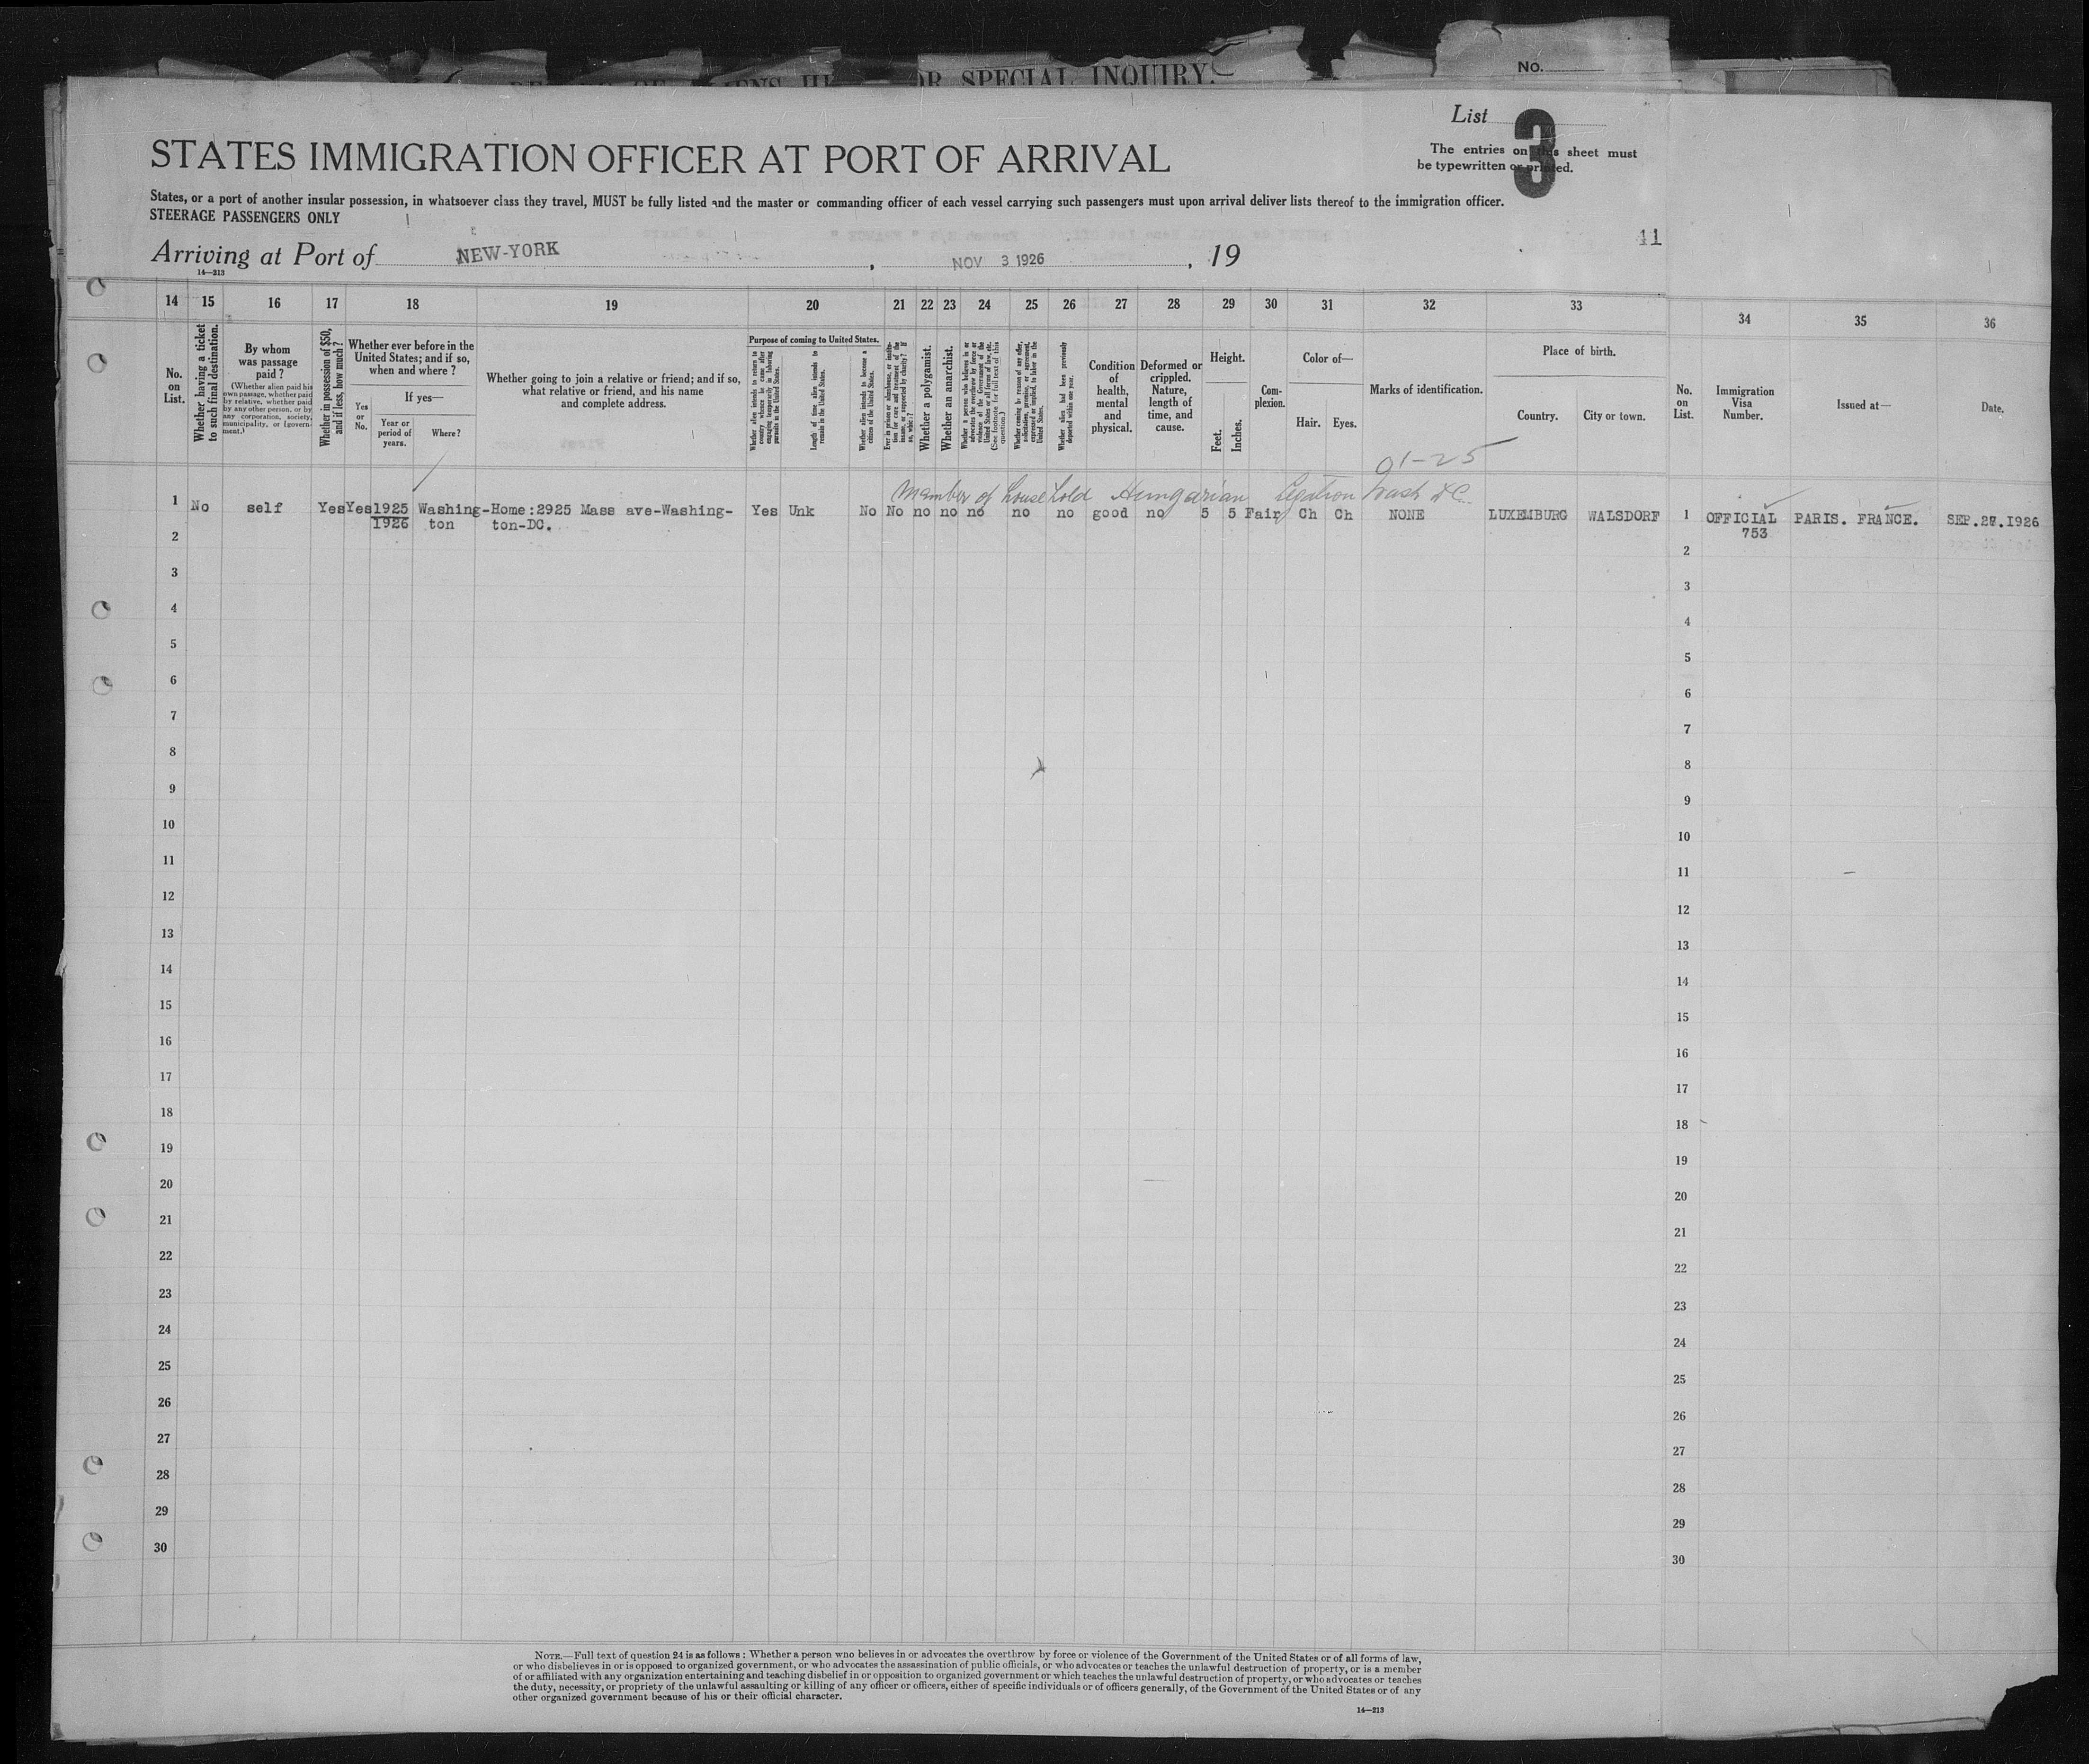 SPECIAL INQUIRY.
No.
List 3
The entries on this sheet must
be typewritten or printed.
STATES IMMIGRATION OFFICER AT PORT OF ARRIVAL
States, or a port of another insular possession, in whatsoever class they travel, MUST be fully listed and the master or commanding officer of each vessel carrying such passengers must upon arrival deliver lists thereof to the immigration officer.
STEERAGE PASSENGERS ONLY
41
Arriving at Port of NEW-YORK, NOV 3 1926, 19
14—213
14 15 16 17 18 19 20 21 22 23 24 25 26 27 28 29 30 31 32 33 34 35 36
No. on List.
Whether having a ticket to such final destination.
By whom was passage paid?
(Whether alien paid his own passage, whether paid by relative, whether paid by any other person, or by any corporation, society, municipality, or government.)
Whether in possession of $50, and if less, how much?
Whether ever before in the United States; and if so, when and where?
Yes or No.
If yes—
Year or period of years.
Where?
Whether going to join a relative or friend; and if so, what relative or friend, and his name and complete address.
Purpose of coming to United States.
Whether alien intends to return to country whence he came after engaging temporarily in laboring pursuits in the United States.
Length of time alien intends to remain in the United States.
Whether alien intends to become a citizen of the United States.
Ever in prison or almshouse, or institution for care and treatment of the insane, or supported by charity? If so, which?
Whether a polygamist.
Whether an anarchist.
Whether a person who believes in or advocates the overthrow by force or violence of the Government of the United States or all forms of law, etc. (See footnote for full text of this question.)
Whether coming by reason of any offer, solicitation, promise, or agreement, expressed or implied, to labor in the United States.
Whether alien had been previously deported within one year.
Condition of health, mental and physical.
Deformed or crippled. Nature, length of time, and cause.
Height.
Feet. Inches.
Complexion.
Color of—
Hair. Eyes.
Marks of identification.
Place of birth.
Country. City or town.
No. on List.
Immigration Visa Number.
Issued at—
Date.
91-25
Member of household Hungarian Legation Wash D.C.
1 No self Yes Yes 1925 Washing- Home:2925 Mass ave-Washing- Yes Unk No No no no no no no good no 5 5 Fair Ch Ch NONE LUXEMBURG WALSDORF 1 OFFICIAL PARIS. FRANCE. SEP.27.1926
1926 ton ton-DC. 753
2 2
3 3
4 4
5 5
6 6
7 7
8 8
9 9
10 10
11 11
12 12
13 13
14 14
15 15
16 16
17 17
18 18
19 19
20 20
21 21
22 22
23 23
24 24
25 25
26 26
27 27
28 28
29 29
30 30
NOTE.—Full text of question 24 is as follows: Whether a person who believes in or advocates the overthrow by force or violence of the Government of the United States or of all forms of law,
or who disbelieves in or is opposed to organized government, or who advocates the assassination of public officials, or who advocates or teaches the unlawful destruction of property, or is a member
of or affiliated with any organization entertaining and teaching disbelief in or opposition to organized government or which teaches the unlawful destruction of property, or who advocates or teaches
the duty, necessity, or propriety of the unlawful assaulting or killing of any officer or officers, either of specific individuals or of officers generally, of the Government of the United States or of any
other organized government because of his or their official character.
14—213